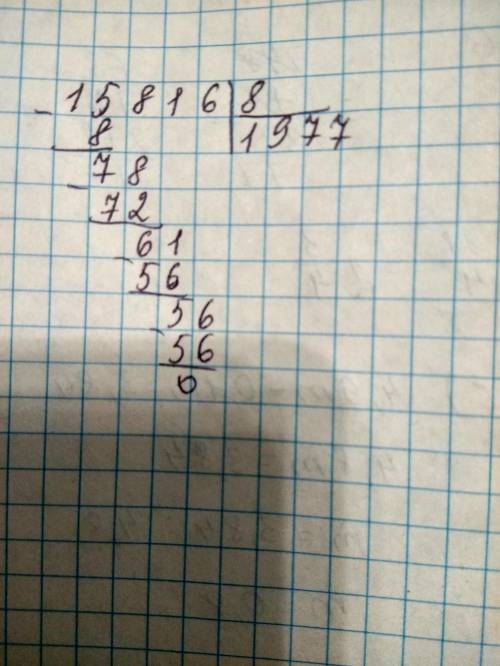 - 15816 | 8
8 | 1977
- 78
72
- 61
56
- 56
56
0